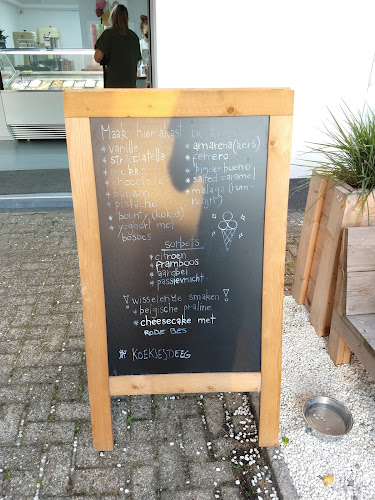 Maak hier alvast uw keuze
* vanille
* stracciatella
* mokka
* chocolade
* banaan
* pistache
* bounty (kokos)
* yoghurt met
bosbes
* amarena (kers)
* ferrero
* kinderbueno
* salted caramel
* malaga (rum-
rozijn)
sorbets
* citroen
* framboos
* aardbei
* passievrucht
! wisselende smaken !
* belgische praline
* cheesecake met
RODE BES
* KOEKJESDEEG